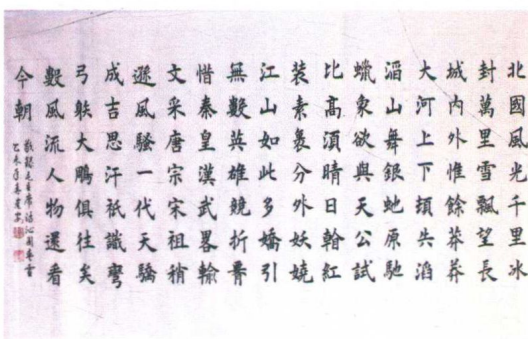 北國風光千里冰
封萬里雪飄望長
城內外惟餘莽莽
大河上下頓失滔
滔山舞銀虵原馳
蠟象欲與天公試
比高湏晴日看紅
裝素裹分外妖嬈
江山如此多嬌引
無數英雄競折腰
惜秦皇漢武畧輸
文采唐宗宋祖稍
遜風騷一代天驕
成吉思汗祇識彎
弓䠶大鵬俱往矣
數風流人物還看
今朝
敬錄毛主席詩沁園春雪
乙未年春